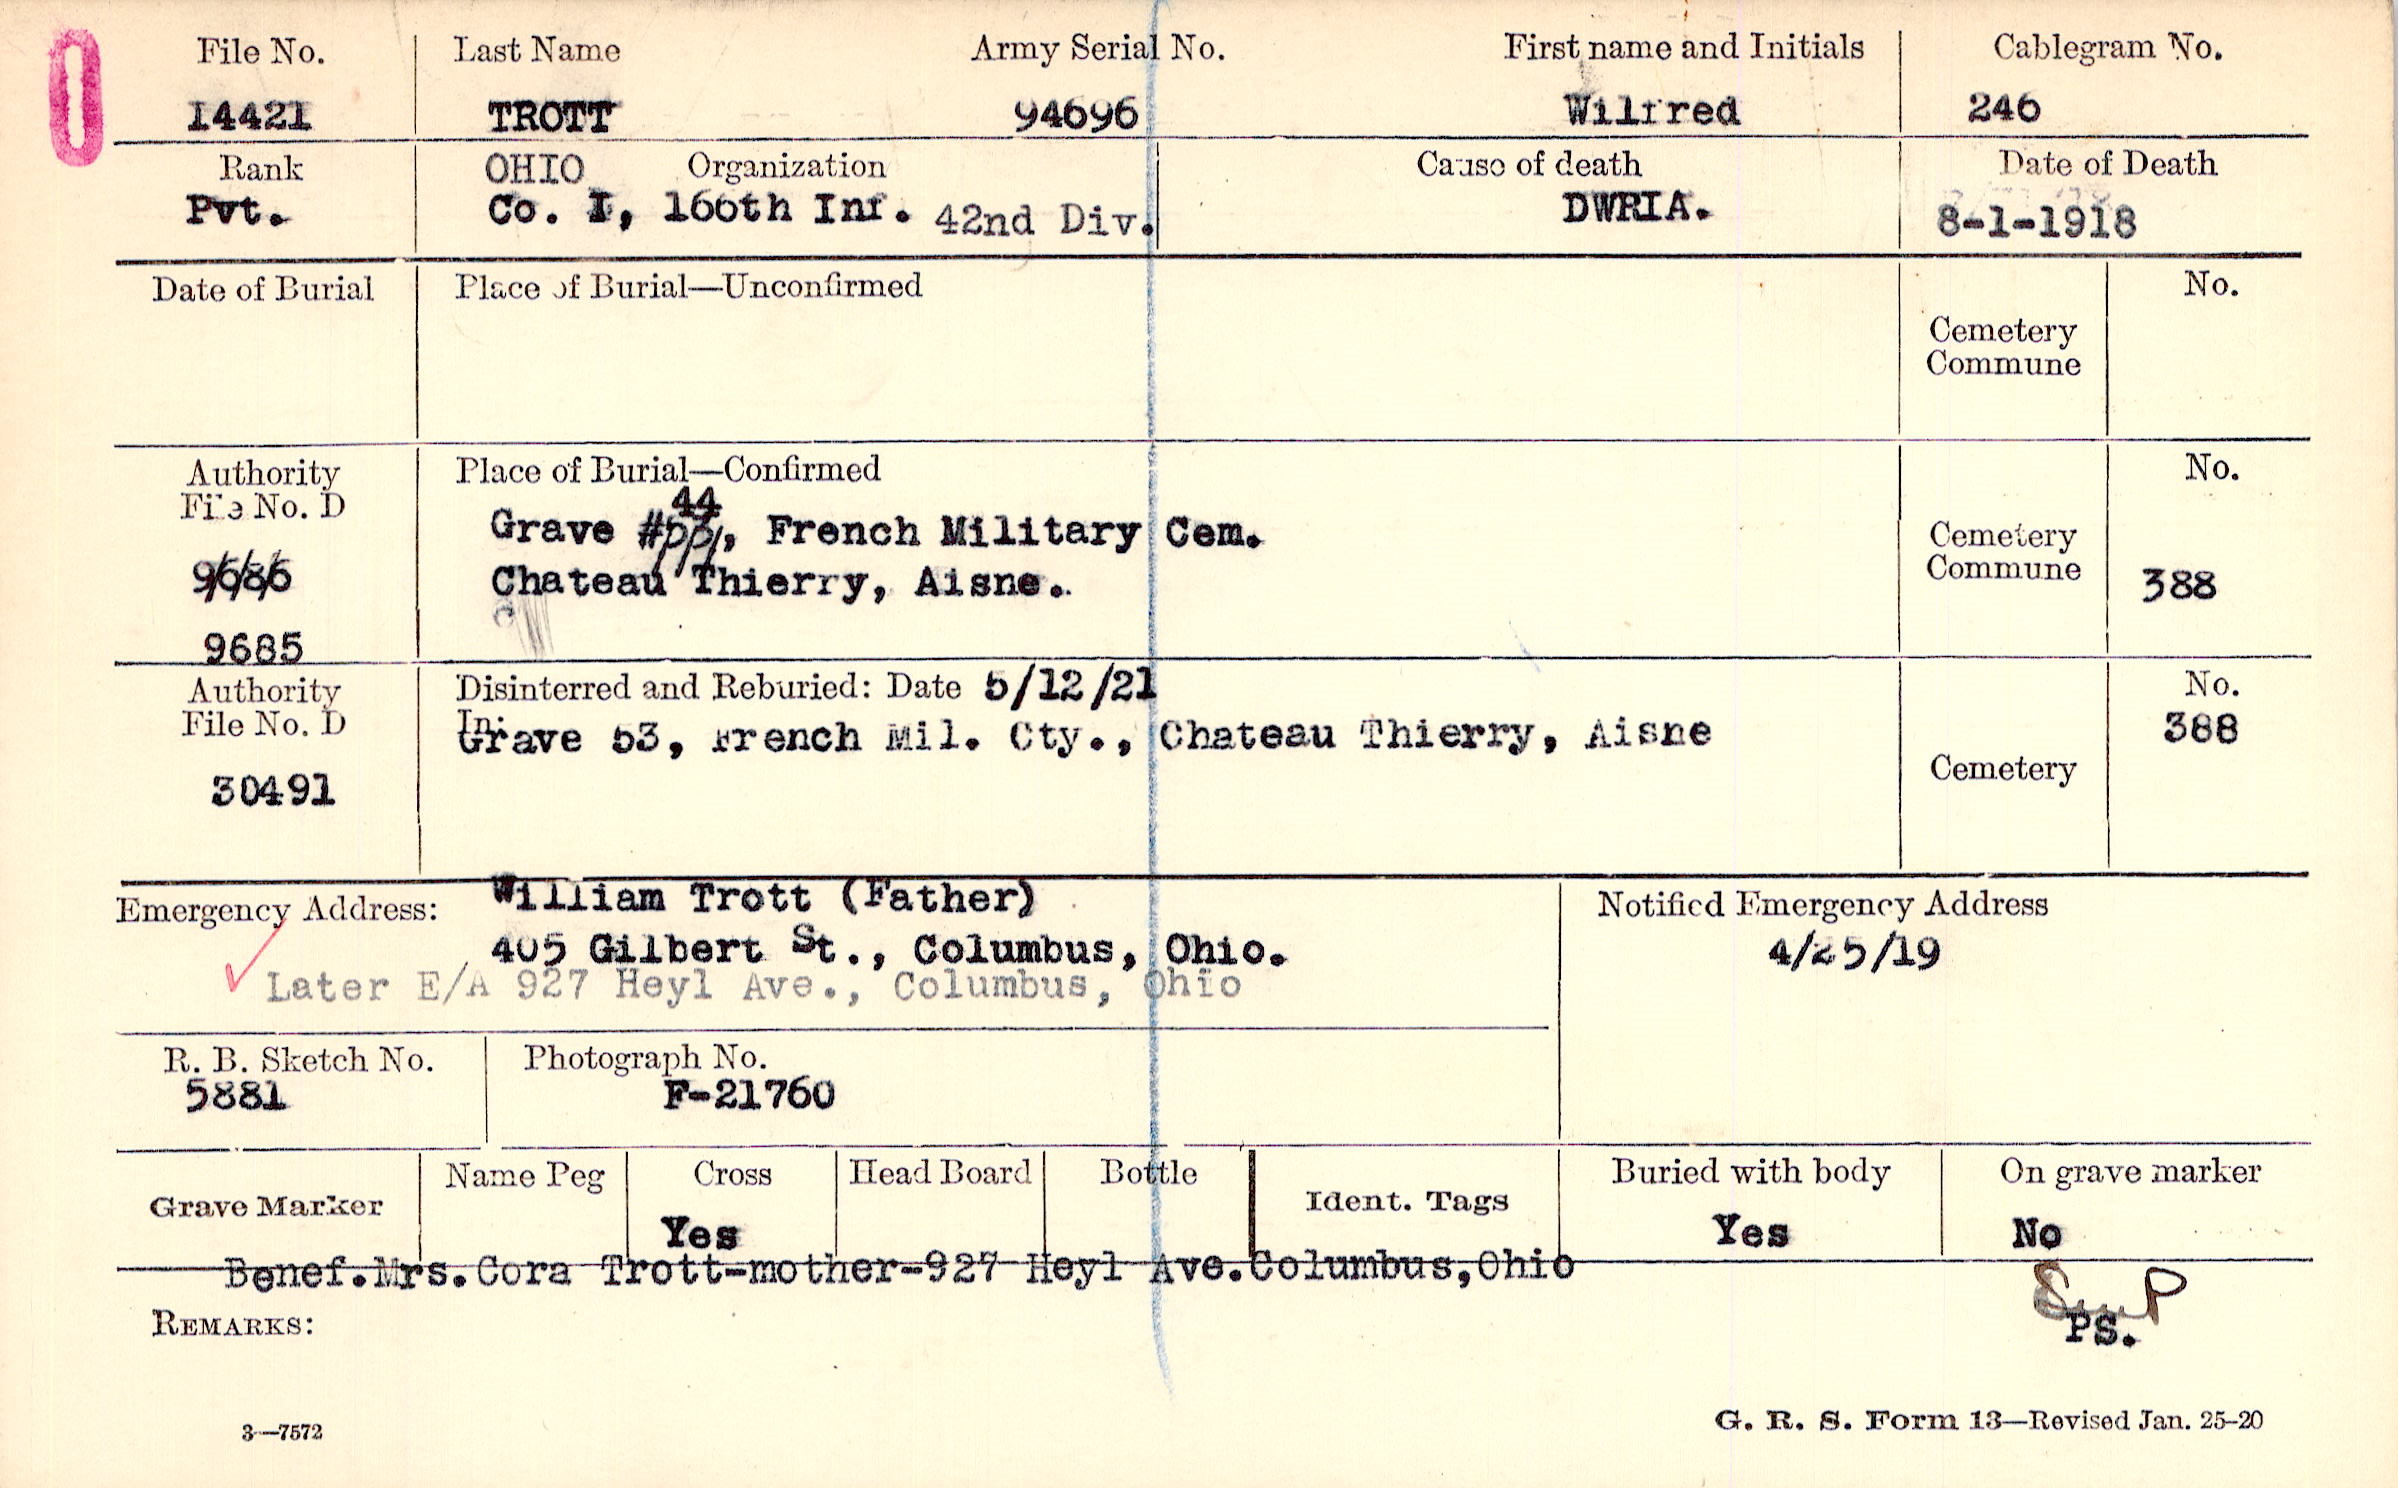 0
File No. Last Name Army Serial No. First name and Initials Cablegram No.
14421 TROTT 94696 Wilfred 246
Rank OHIO Organization Cause of death Date of Death
Pvt. Co. I, 166th Inf. 42nd Div. DWRIA. 8-1-1918
Date of Burial Place of Burial—Unconfirmed No.
Cemetery
Commune
Authority Place of Burial—Confirmed No.
File No. D 44
Grave #53, French Military Cem. Cemetery
9686 Chateau Thierry, Aisne. Commune 388
9685
Authority Disinterred and Reburied: Date 5/12/21 No.
File No. D In:
Grave 53, French Mil. Cty., Chateau Thierry, Aisne 388
30491 Cemetery
William Trott (Father)
Emergency Address: Notified Emergency Address
405 Gilbert St., Columbus, Ohio. 4/25/19
Later E/A 927 Heyl Ave., Columbus, Ohio
R. B. Sketch No. Photograph No.
5881 F-21760
Grave Marker Name Peg Cross Head Board Bottle Ident. Tags Buried with body On grave marker
Yes Yes No
Benef.Mrs.Cora Trott-mother-927 Heyl Ave.Columbus,Ohio
REMARKS:
PS.
3—7572 G. R. S. Form 13—Revised Jan. 25-20